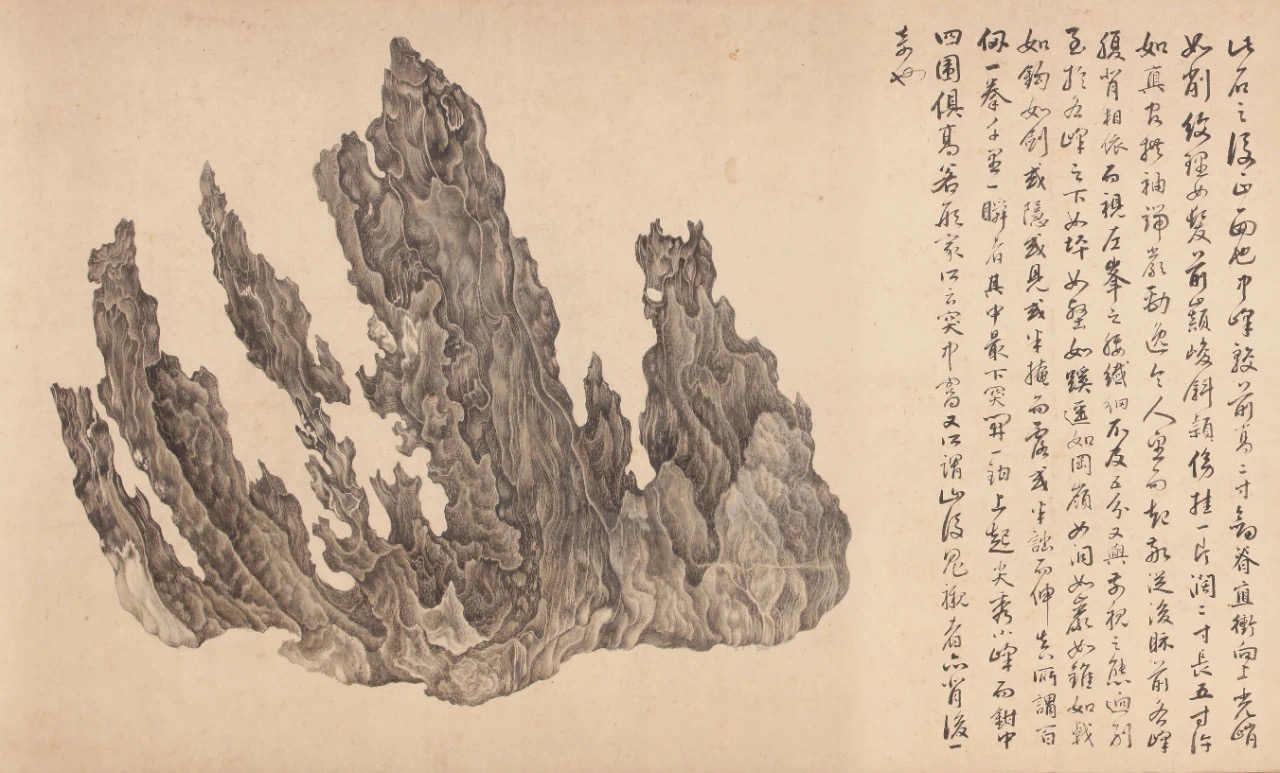 此石之後正面也中峰較前高二寸劍脊直衝向上光峭
如削紋理如髮前巔峻斜潁傍挂一片濶二寸長五寸許
如真官拱袖端嚴勁逸令人望而起敬從後脉前各峰
腹背相依而視左峯之腰纖細不及五分又與前視之態迥別
至於各峰之下如坪如壑如蹊逕如岡嶺如洞如巖如錐如戟
如鈎如劍或隱或見或半掩而露或半詘而伸真所謂百
仞一拳千里一瞬者其中最下突開一鈿上起尖秀小峰而鉗中
四圍俱高若形家所云突中窩又所謂山後鬼襯者亦背後一
奇也